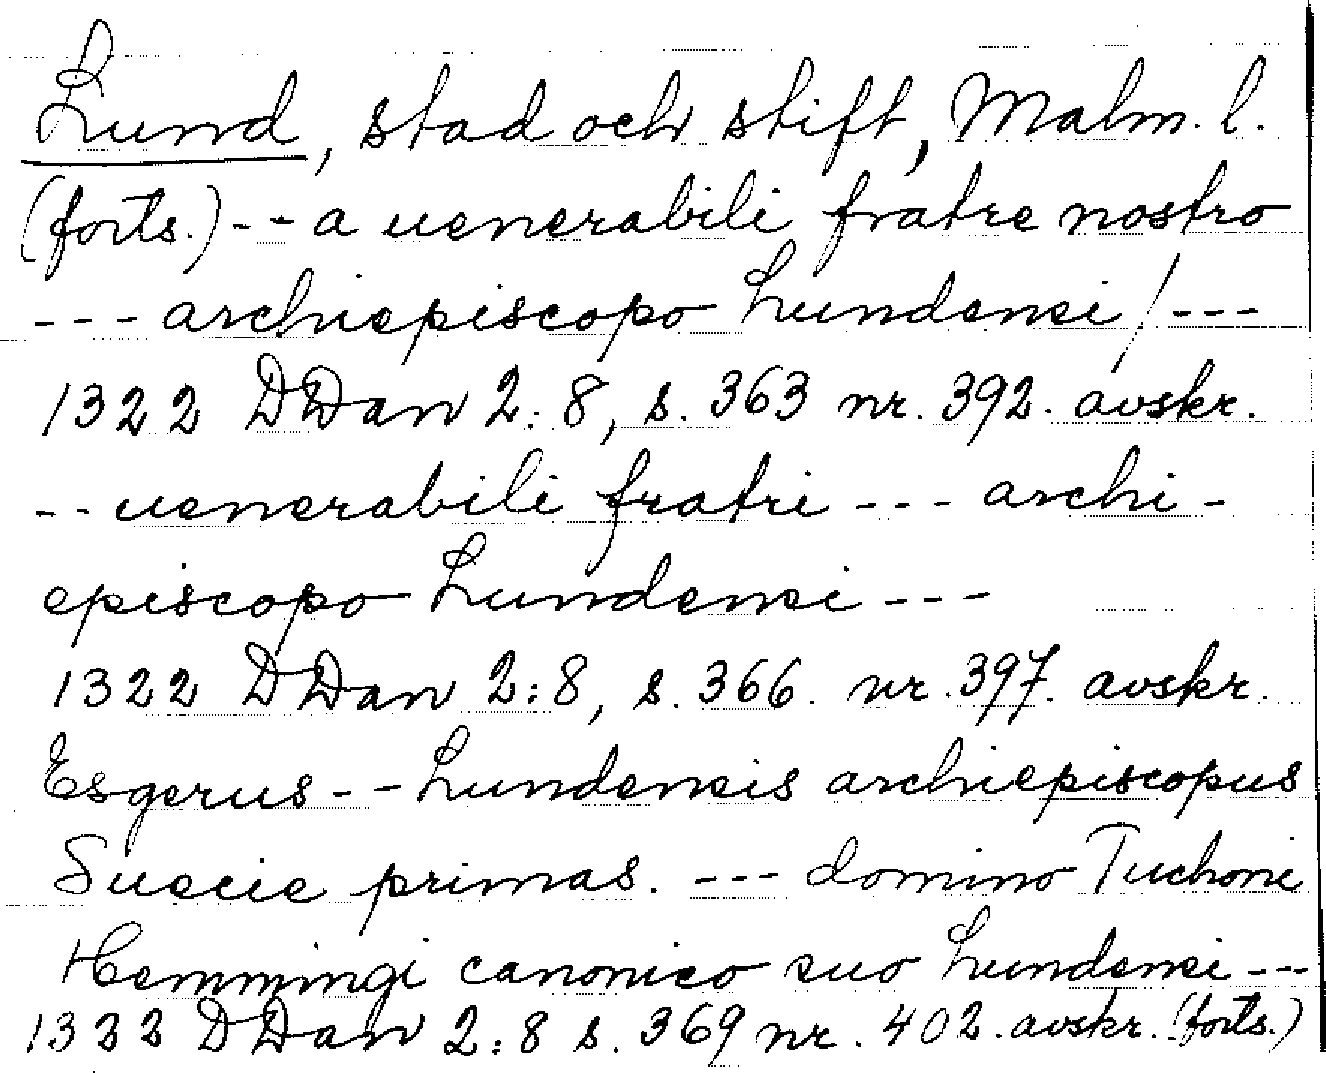 Lund, stad och stift, Malm. l.
(forts.) -- a uenerabili fratre nostro
--- archiepiscopo Lundensi / ---
1322 DDan 2:8, s. 363 nr. 392. avskr.
-- uenerabili fratri --- archi-
episcopo Lundensi ---
1322 DDan 2:8, s. 366. nr. 397. avskr.
Esgerus -- Lundensis archiepiscopus
Suecie primas. --- domino Tuchoni
Hemmingi canonico suo Lundensi ---
1322 DDan 2:8 s. 369 nr. 402. avskr. (forts.)